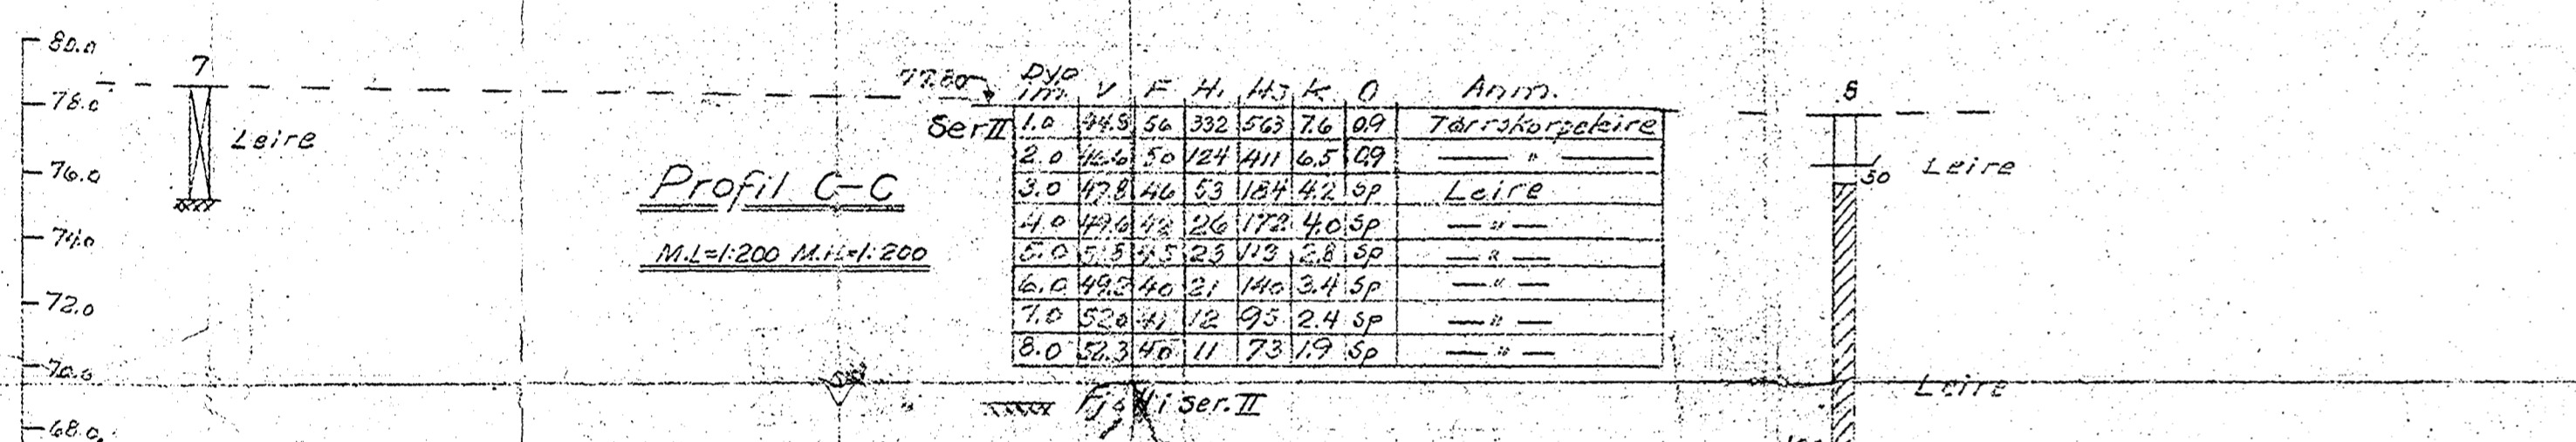 80.0
78.0
76.0
74.0
72.0
70.0
68.0
7
Leire
Profil C-C
M.L=1:200 M.H=1:200
77.80
Ser II
Dyp i m. V F H₁ H₃ k O Anm.
1.0 44.5 56 332 563 7.6 0.9 Tørrskorpeleire
2.0 46.6 50 124 411 6.5 0.9 — " —
3.0 47.8 46 53 184 4.2 sp Leire
4.0 49.6 42 26 172 4.0 sp — " —
5.0 45 23 113 2.8 sp — " —
6.0 49.2 40 21 140 3.4 sp — " —
7.0 52.0 41 12 95 2.4 sp — " —
8.0 52.3 40 11 73 1.9 sp — " —
Fjell i ser. II
8
50
Leire
Leire